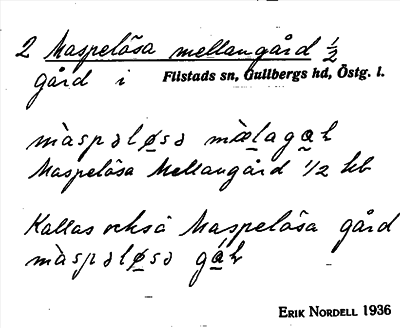 2 Maspelösa mellangård ½
gård i Flistads sn, Gullbergs hd, Östg. l.
màspəløsə mæ̀lagaḥ
Maspelösa Mellangård 1/2 hb
Kallas också Maspelösa gård
màspəløsə
ERIK NORDELL 1936